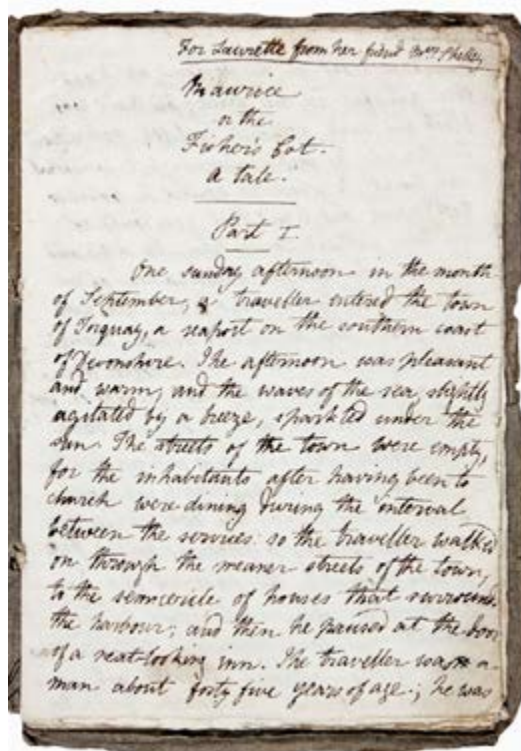 For Laurette from her friend Mrs. Shelley
Maurice
or the
Fisher's Cot.
a tale.
Part I.
One sunday afternoon in the month
of September, a traveller entered the town
of Torquay, a seaport on the southern coast
of Devonshire. The afternoon was pleasant
and warm, and the waves of the sea, slightly
agitated by a breeze, sparkled under the
sun. The streets of the town were empty,
for the inhabitants after having been to
church were dining during the interval
between the services: so the traveller walked
on through the meaner streets of the town,
to the semicircle of houses that surrounds
the harbour; and then he paused at the door
of a neat-looking inn. The traveller was a
man about forty five years of age; he was